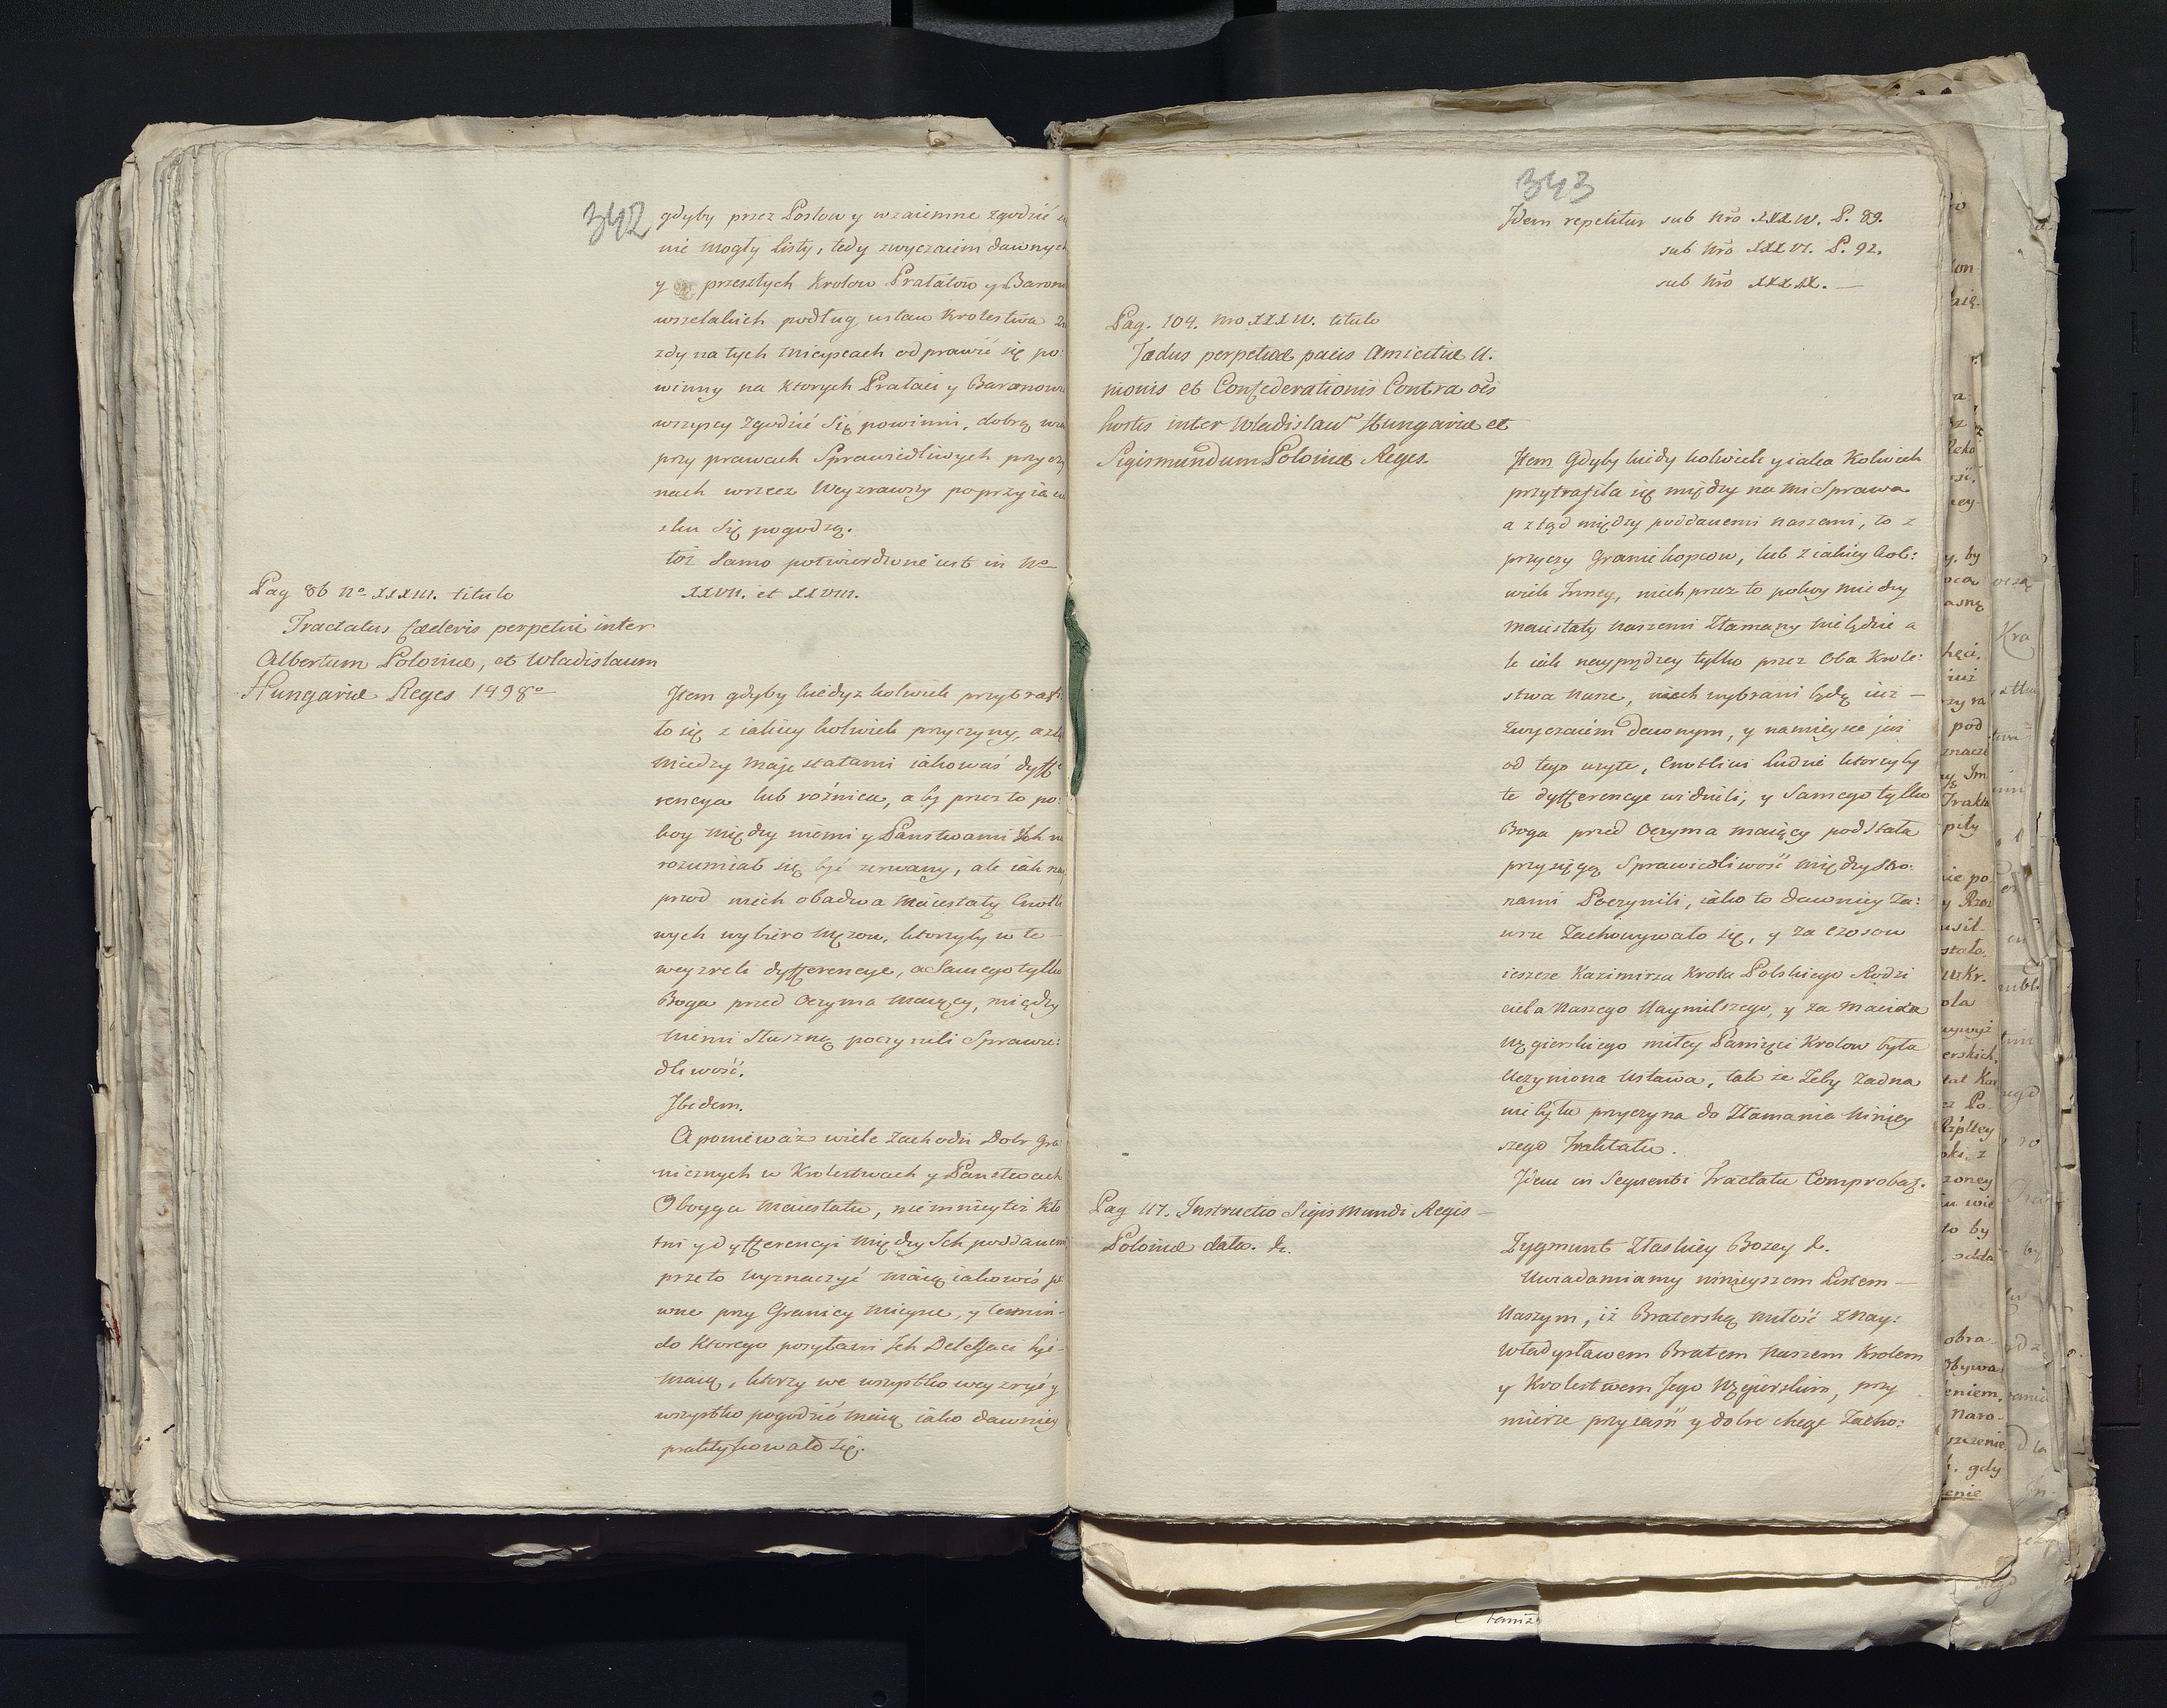 342
gdyby przez Posłow y wzaiemne zgodzić
nie mogły listy, tedy zwyczaiem dawnych
y przeszłych Krolow Prałatow y Baron
wszelakich podług ustaw Krolestwa
zdy na tych mieyscach odprawić się po:
winny na ktorych Prałaci y Baronowi
wszyscy zgodzić się powinni, dobrą
przy prawach Sprawiedliwych przyczy
nach wrzecz weyzrawszy poprzyia
zku się pogodzą.
toż Samo potwierdzone iest in No
XXVII. et XXVIII.
Pag 86 No XXXIII. titulo
Tractatus fœderis perpetui inter
Albertum Poloniæ, et Wladislaum
Hungariæ Reges 1498o
Item gdyby kiedyż kolwiek przytrafi
ło się z iakiey kolwiek przyczyny, a
miedzy Maje statami iakowaś dyffe
rencya lub rożnica, aby przez to po:
koy między niemi y Państwami Ich
rozumiał się być zerwany, ale iak nay
przod niech obadwa Maiestaty Cnotli
wych wybiero mężow, ktorzyby w te
weyzreli dyfferencye, a Samego tylko
Boga przed Oczyma maiący, między
niemi słuszną poczynili Sprawie:
dliwość.
Ibidem.
A ponieważ wiele zachodzi Dobr Gra
nicznych w Krolestwach y Państwach
Oboyga Maiestatu, niemniey też kło
tni y dyfferencyi między Ich poddanemi
przeto wyznaczyć maią iakowiś pe
wne przy Granicy mieysce, y termin
do ktorego posyłani Ich Delegaci być
maią, ktorzy we wszystko weyzryć y
wszystko pogodzić maią iako dawniey
praktykowało się.
343
Idem repetitur sub Nro XXXIV. P. 89.
sub Nro XXXVI. P. 92.
sub Nro XXXIX. —
Pag. 104. Nro XXXIV. titulo
Fœdus perpetuæ pacis Amicitiæ U.
nionis et Confederationis Contra oēs
hostes inter Wladislaum Hungariæ et
Sigismundum Poloniæ Reges.
Item Gdyby kiedy kolwiek y iaka kolwiek
przytrafiła się między nami Sprawa
a ztąd między poddanemi naszemi, to z
przyczy Granic kopcow, lub z iakiey kol:
wiek Inney, niech przez to pokoy miedzy
Maiestaty naszemi złamany niebędzie a
le iak nayprędzey tylko przez Oba Krole:
stwa nasze, niech wybrani będą iuż —
zwyczaiem dawnym, y na mieysce już
od tego użyte, Cnotliwi Ludzie ktorzyby
te dyfferencye widzieli, y Samego tylko
Boga przed Oczyma maiący pod Stała
przysięgą Sprawiedliwość między Stro:
nami Poczynili, iako to dawniey Za:
wsze Zachowywało się, y za czasow
ieszcze Kazimirza Krola Polskiego Rodzi
ciela Naszego Naymilszego, y za Macieia
Węgierskiego miłey Pamięci Krolow była
Uczyniona Ustawa, tak że żeby żadna
niebyła przyczyna do złamania niniey
szego Traktatu.
Idem in Sequenti Tractatu Comprobat.
Pag 117. Instructio Sigismundi Regis —
Poloniæ data. &.
Zygmunt Złaskiey Bozey &.
Uwiadamiamy ninieyszem Listem —
Naszym, iż Braterską miłość z Nay:
Władysławem Bratem Naszem Krolem
y Krolestwem Jego Węgierskim, przy
mierze przyiaźń y dobre chęge Zacho: